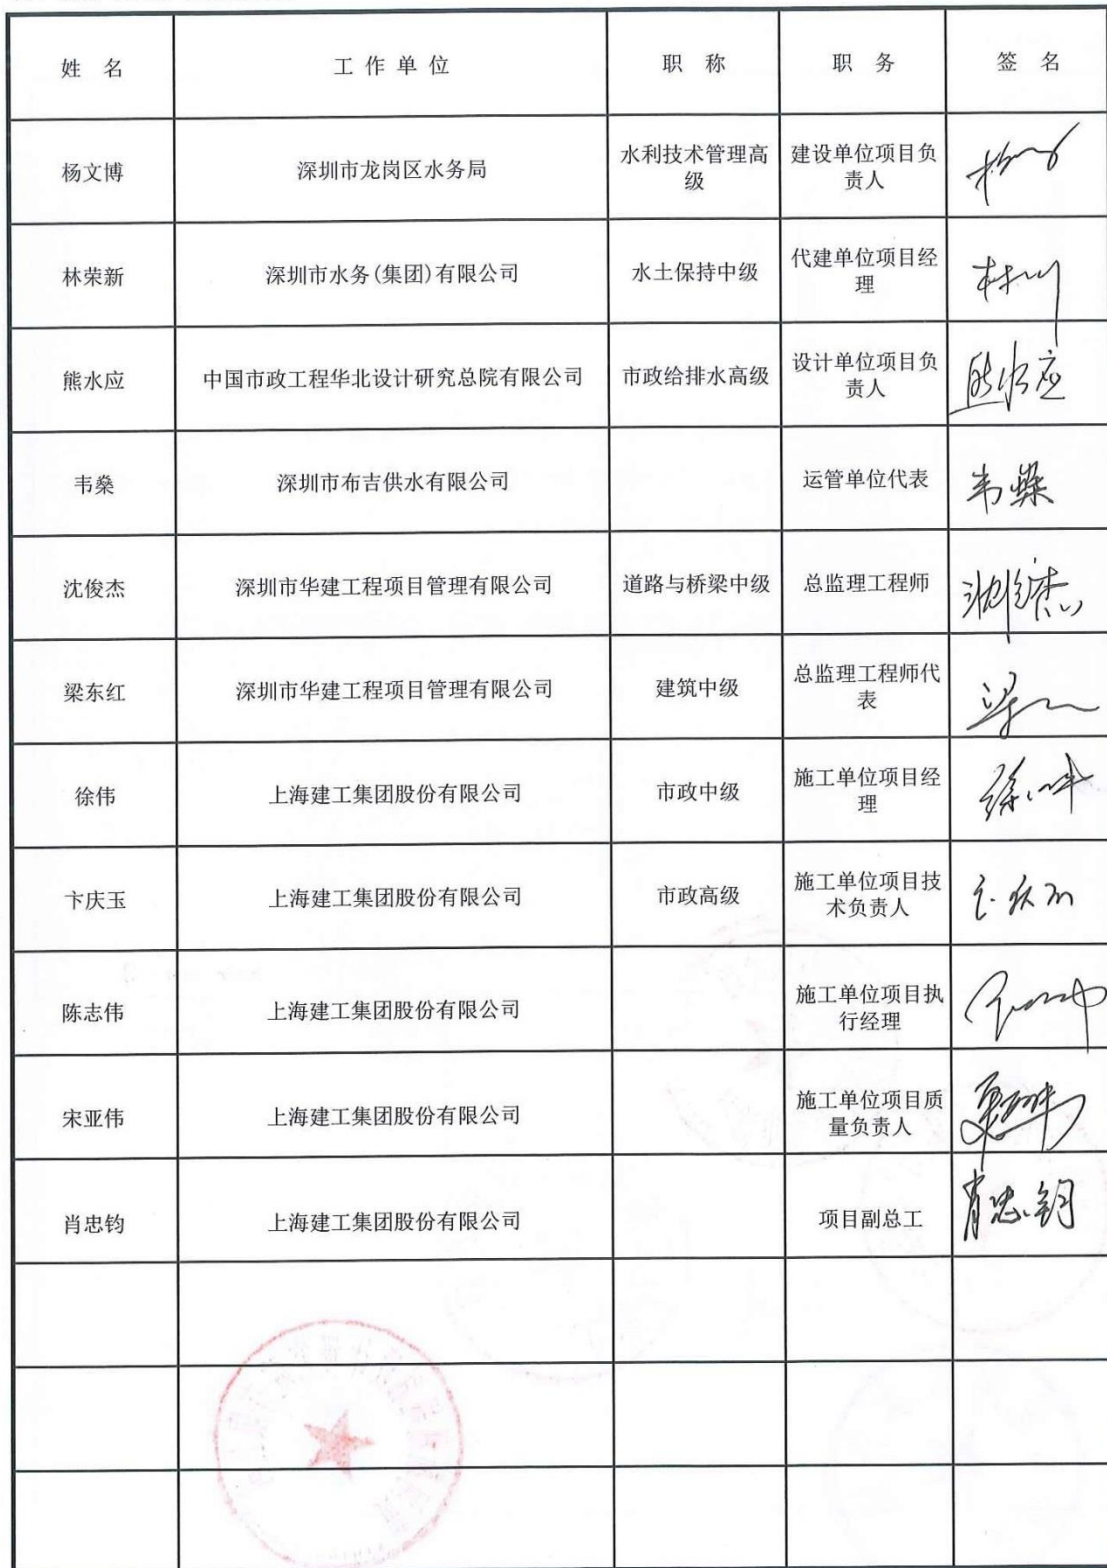 姓 名 工 作 单 位 职 称 职 务 签 名
杨文博 深圳市龙岗区水务局 水利技术管理高级 建设单位项目负责人
林荣新 深圳市水务(集团)有限公司 水土保持中级 代建单位项目经理
熊水应 中国市政工程华北设计研究总院有限公司 市政给排水高级 设计单位项目负责人 熊水应
韦燊 深圳市布吉供水有限公司 运管单位代表 韦燊
沈俊杰 深圳市华建工程项目管理有限公司 道路与桥梁中级 总监理工程师 沈俊杰
梁东红 深圳市华建工程项目管理有限公司 建筑中级 总监理工程师代表
徐伟 上海建工集团股份有限公司 市政中级 施工单位项目经理 徐伟
卞庆玉 上海建工集团股份有限公司 市政高级 施工单位项目技术负责人
陈志伟 上海建工集团股份有限公司 施工单位项目执行经理
宋亚伟 上海建工集团股份有限公司 施工单位项目质量负责人
肖忠钧 上海建工集团股份有限公司 项目副总工 肖忠钧